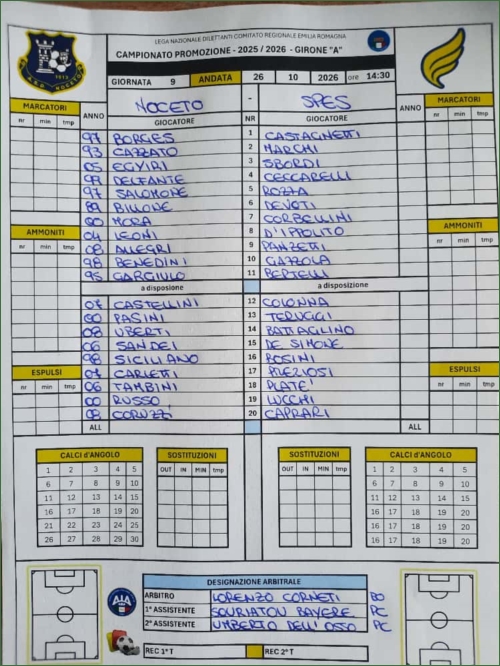 LEGA NAZIONALE DILETTANTI COMITATO REGIONALE EMILIA ROMAGNA
CAMPIONATO PROMOZIONE - 2025 / 2026 - GIRONE "A"
GIORNATA 9 ANDATA 26 10 2026 ore 14:30
MARCATORI ANNO NOCETO - SPES ANNO MARCATORI
nr min tmp GIOCATORE NR GIOCATORE nr min tmp
97 BORGES 1 CASTAGNETTI
93 CAZZATO 2 MARCHI
05 EGYIRI 3 SBORDI
99 DELFANTE 4 CECCARELLI
97 SALOMONE 5 ROZZA
89 BILLONE 6 DEVOTI
00 MORA 7 CORBELLINI
AMMONITI 04 LEONI 8 D'IPPOLITO AMMONITI
nr min tmp 08 ALLEGRI 9 PANZETTI nr min tmp
98 BENEDINI 10 GAZZOLA
95 GARGIULO 11 BERTELLI
a disposione a disposizione
07 CASTELLINI 12 COLONNA
00 PASINI 13 TERUGGI
08 UBERTI 14 BATTAGLINO
06 SANDEI 15 DE SIMONE
98 SICILIANO 16 BOSINI
ESPULSI 07 CARLETTI 17 PREZIOSI ESPULSI
nr min tmp 06 TAMBINI 18 PLATE' nr min tmp
00 RUSSO 19 LUCCHI
08 CORUZZI 20 CAPRARI
ALL ALL
CALCI d'ANGOLO SOSTITUZIONI SOSTITUZIONI CALCI d'ANGOLO
1 2 3 4 5 OUT IN MIN tmp OUT IN MIN tmp 1 2 3 4 5
6 7 8 9 10 6 7 8 9 10
11 12 13 14 15 11 12 13 14 15
16 17 18 19 20 16 17 18 19 20
21 22 23 24 25 16 17 18 19 20
26 27 28 29 30 16 17 18 19 20
DESIGNAZIONE ARBITRALE
AIA
ARBITRO LORENZO CORNETI BO
1° ASSISTENTE SOURIATOU BAYERE PC
2° ASSISTENTE UMBERTO DELL'OSSO PC
REC 1° T REC 2° T